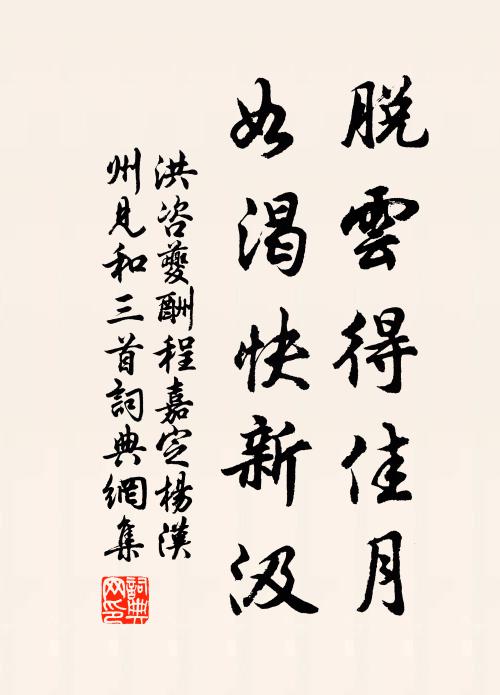 脱雲得佳月
如渴快新汲
洪咨夔酬程嘉定楊漢
州見和三首詞典網集